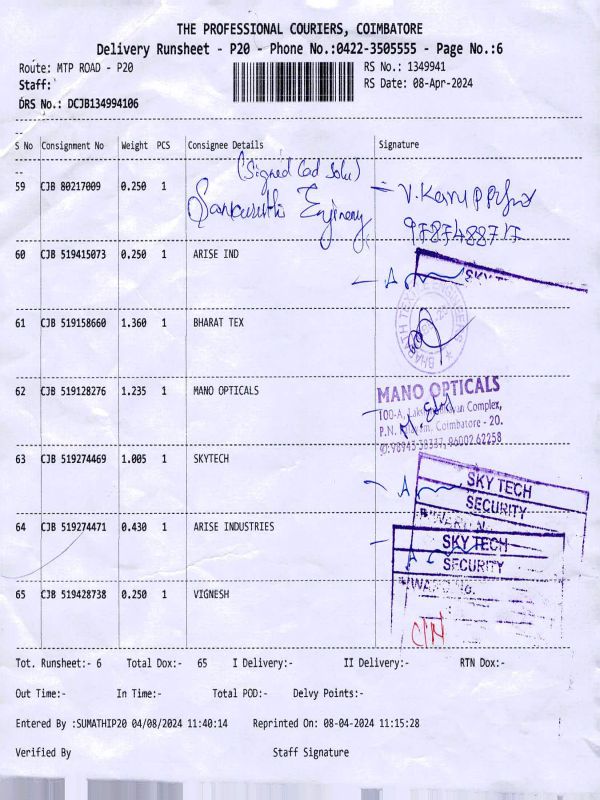 THE PROFESSIONAL COURIERS, COIMBATORE
Delivery Runsheet - P20 - Phone No.:0422-3505555 - Page No.:6
Route: MTP ROAD - P20 RS No.: 1349941
Staff: RS Date: 08-Apr-2024
DRS No.: DCJB134994106
S No Consignment No Weight PCS Consignee Details Signature
59 CJB 80217009 0.250 1
9787488717
60 CJB 519415073 0.250 1 ARISE IND
SKY
61 CJB 519158660 1.360 1 BHARAT TEX
BHARATH TEX
62 CJB 519128276 1.235 1 MANO OPTICALS
MANO OPTICALS
100-A, Complex,
P.N. Coimbatore - 20.
63 CJB 519274469 1.005 1 SKYTECH
SKY TECH
SECURITY
64 CJB 519274471 0.430 1 ARISE INDUSTRIES
SKY TECH
SECURITY
65 CJB 519428738 0.250 1 VIGNESH
Tot. Runsheet:- 6 Total Dox:- 65 I Delivery:- II Delivery:- RTN Dox:-
Out Time:- In Time:- Total POD:- Delvy Points:-
Entered By :SUMATHIP20 04/08/2024 11:40:14 Reprinted On: 08-04-2024 11:15:28
Verified By Staff Signature